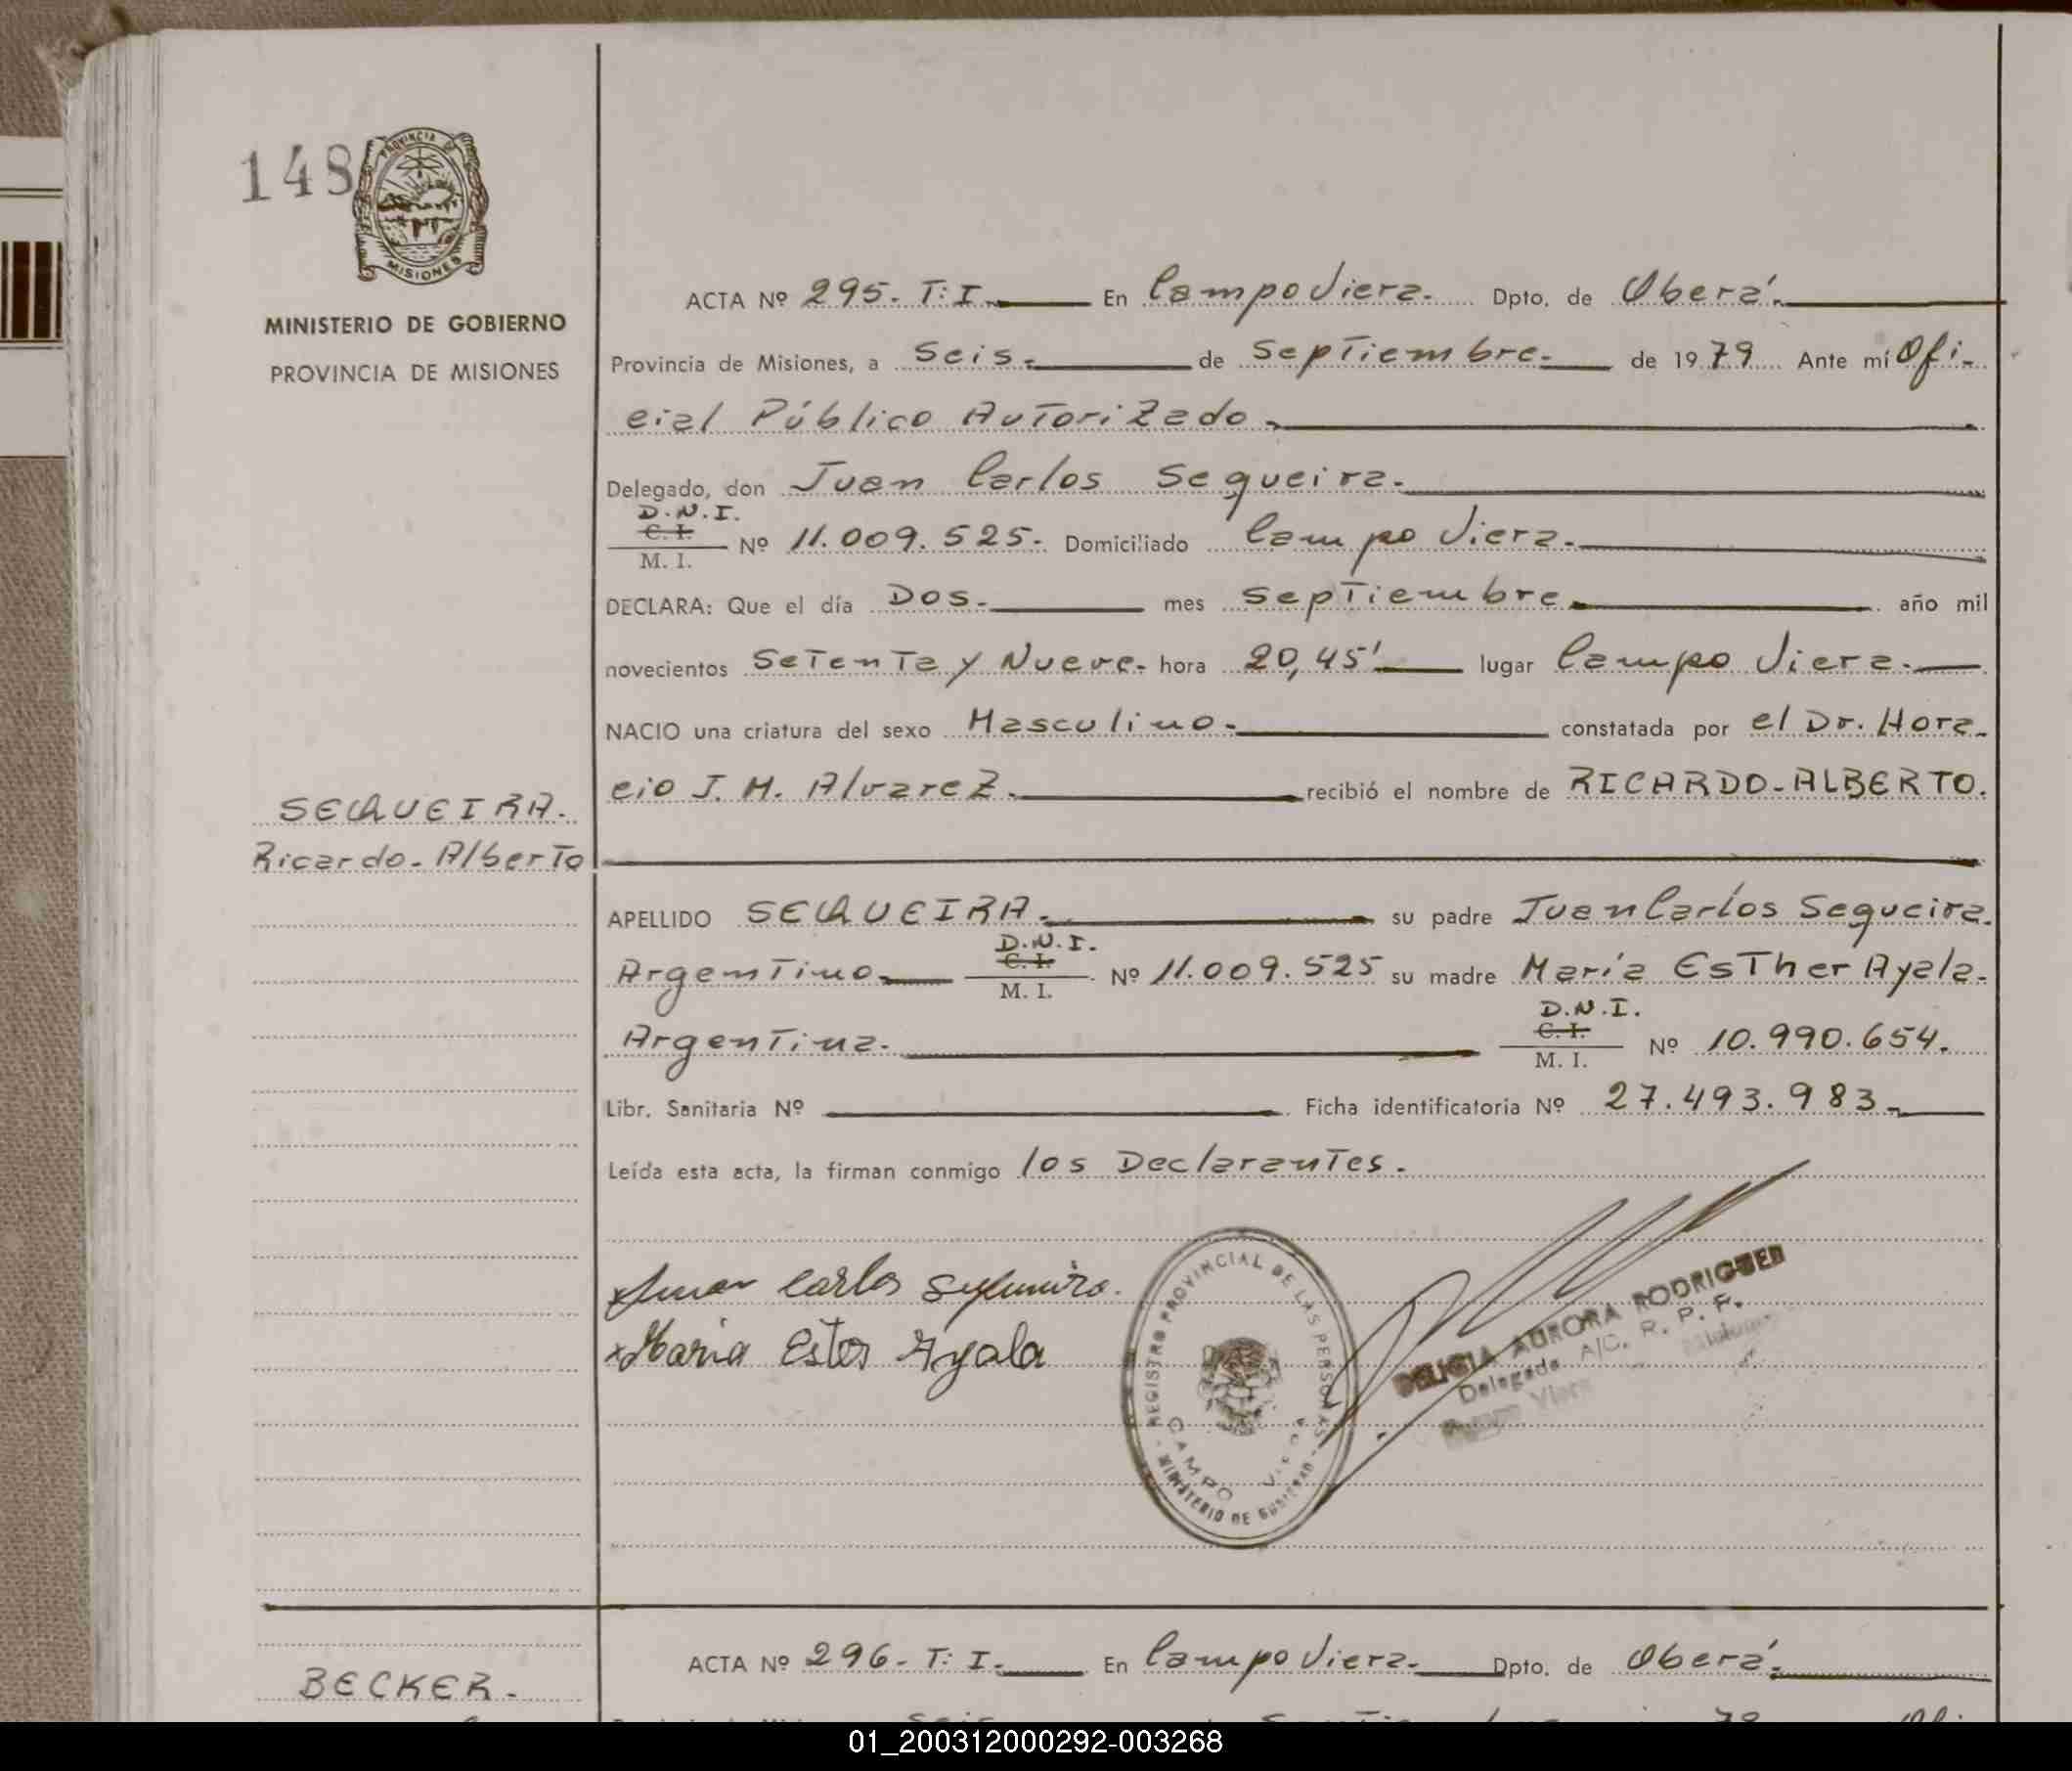 148
PROVINCIA DE
MISIONES
MINISTERIO DE GOBIERNO
PROVINCIA DE MISIONES
ACTA Nº 295. T: I. En Campo Viera. Dpto. de Oberá.
Provincia de Misiones, a Seis. de Septiembre. de 1979 Ante mí Ofi-
cial Público Autorizado.
Delegado, don Juan Carlos Sequeira.
D.N.I.
C. I.
M. I. Nº 11.009.525. Domiciliado Campo Viera.
DECLARA: Que el día Dos. mes Septiembre año mil
novecientos Setenta y Nueve. hora 20,45' lugar Campo Viera.
NACIO una criatura del sexo Masculino. constatada por el Dr. Hora-
cio J. M. Alvarez. recibió el nombre de RICARDO-ALBERTO.
SEQUEIRA.
Ricardo-Alberto
APELLIDO SEQUEIRA. su padre Juan Carlos Sequeira.
Argentino D.N.I. C. I. M. I. Nº 11.009.525 su madre María Esther Ayala.
Argentina. D.N.I. C. I. M. I. Nº 10.990.654.
Libr. Sanitaria Nº Ficha identificatoria Nº 27.493.983.
Leída esta acta, la firman conmigo los Declarantes.
Juan Carlos Sequeira.
Maria Ester Ayala
REGISTRO PROVINCIAL DE LAS PERSONAS
CAMPO VIERA
MINISTERIO DE GOBIERNO
DELICIA AURORA RODRIGUEZ
Delegada A/C. R. P. P.
Campo Viera
ACTA Nº 296. T: I. En Campo Viera. Dpto. de Oberá.
BECKER.
01_200312000292-003268